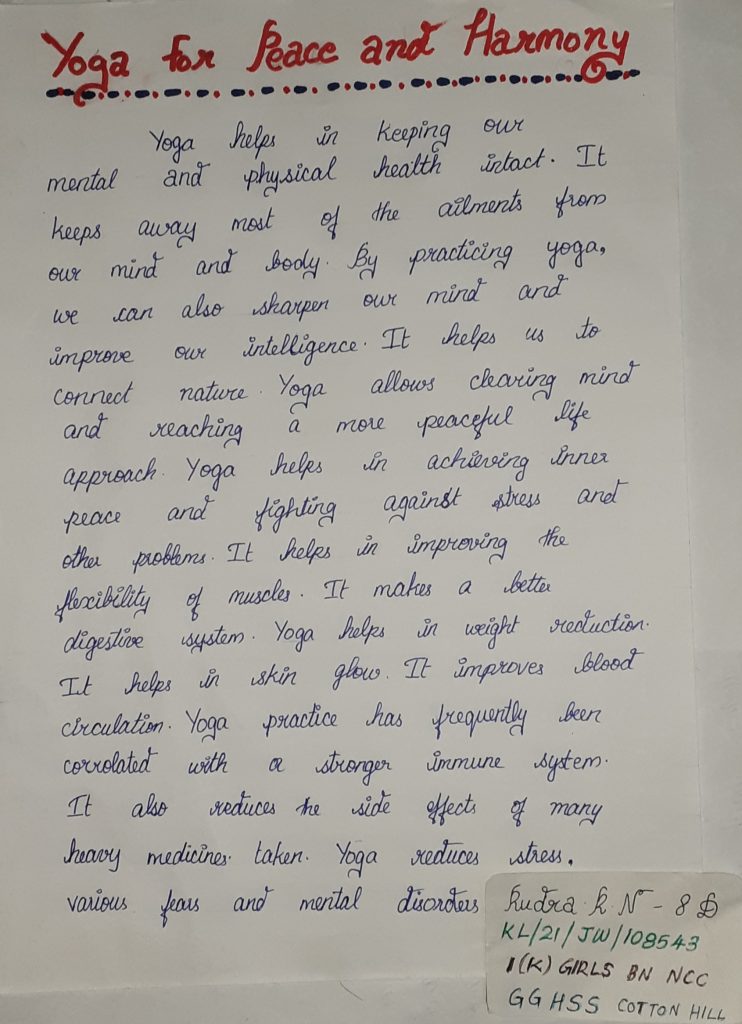 Yoga for Peace and Harmony
Yoga helps in keeping our
mental and physical health intact. It
keeps away most of the ailments from
our mind and body. By practicing yoga,
we can also sharpen our mind and
improve our intelligence. It helps us to
connect nature. Yoga allows clearing mind
and reaching a more peaceful life
approach. Yoga helps in achieving inner
peace and fighting against stress and
other problems. It helps in improving the
flexibility of muscles. It makes a better
digestive system. Yoga helps in weight reduction.
It helps in skin glow. It improves blood
circulation. Yoga practice has frequently been
corrolated with a stronger immune system.
It also reduces the side effects of many
heavy medicines. taken. Yoga reduces stress,
various fears and mental disorders
Rudra R. N - 8 D
KL/21/JW/108543
1(K) GIRLS BN NCC
GGHSS COTTON HILL